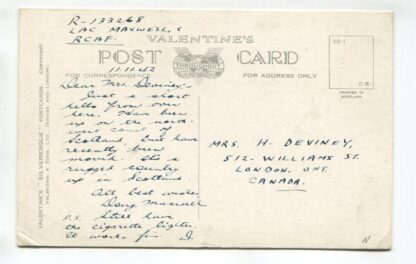 R-133268
LAC MAXWELL, C
RCAF.
VALENTINE'S
POST CARD
11.11.42
FOR CORRESPONDENCE
FOR ADDRESS ONLY
S8-1
C B.
PRINTED IN
SCOTLAND
VALENTINE'S "SILVERESQUE" POSTCARDS. COPYRIGHT.
VALENTINE & SONS, LTD., DUNDEE AND LONDON.
Dear Mrs. Deviney:-
Just a short
hello from over
here. Have been
up on the north-
west coast of
Scotland but have
recently been
moved. It's a
rugged country
up in Scotland
All best wishes,
Doug Maxwell
P.S. Still have
the cigarette lighter.
It works fine. D.
MRS. H. DEVINEY,
512- WILLIAMS ST.
LONDON, ONT.
CANADA.
N